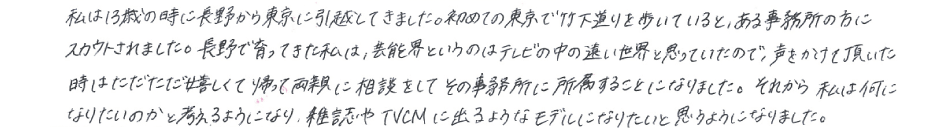 私は13歳の時に長野から東京に引越してきました。初めての東京で竹下通りを歩いていると、ある事務所の方に
スカウトされました。長野で育ってきた私は、芸能界というのはテレビの中の遠い世界と思っていたので、声をかけて頂いた
時はただただ嬉しくて帰って両親に相談をしてその事務所に所属することになりました。それから私は何に
なりたいのかと考えるようになり、雑誌やTVCMに出るようなモデルになりたいと思うようになりました。